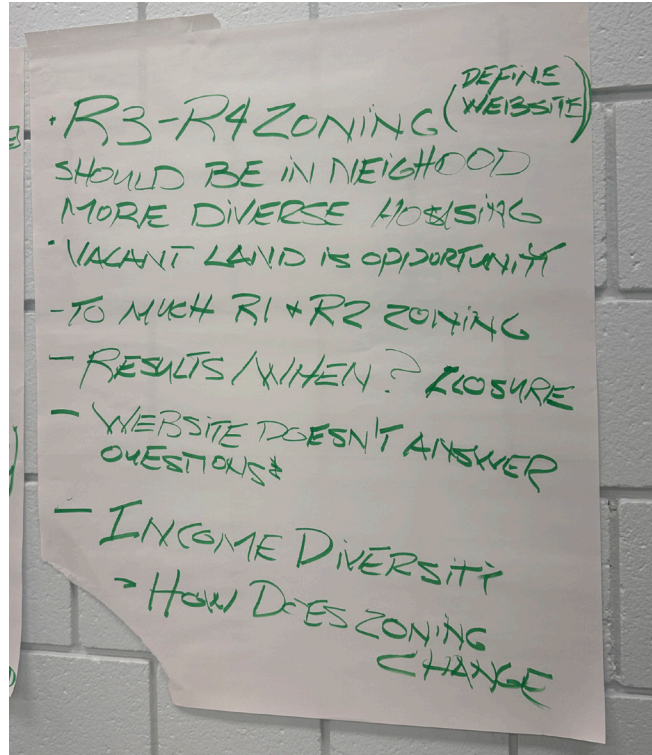 (DEFINE
WEBSITE)
• R3-R4 ZONING
SHOULD BE IN NEIGHOOD
MORE DIVERSE HOUSING
• VACANT LAND IS OPPORTUNITY
- TO MUCH R1 + R2 ZONING
- RESULTS/WHEN? CLOSURE
- WEBSITE DOESN'T ANSWER
QUESTIONS
- INCOME DIVERSITY
> HOW DOES ZONING
CHANGE